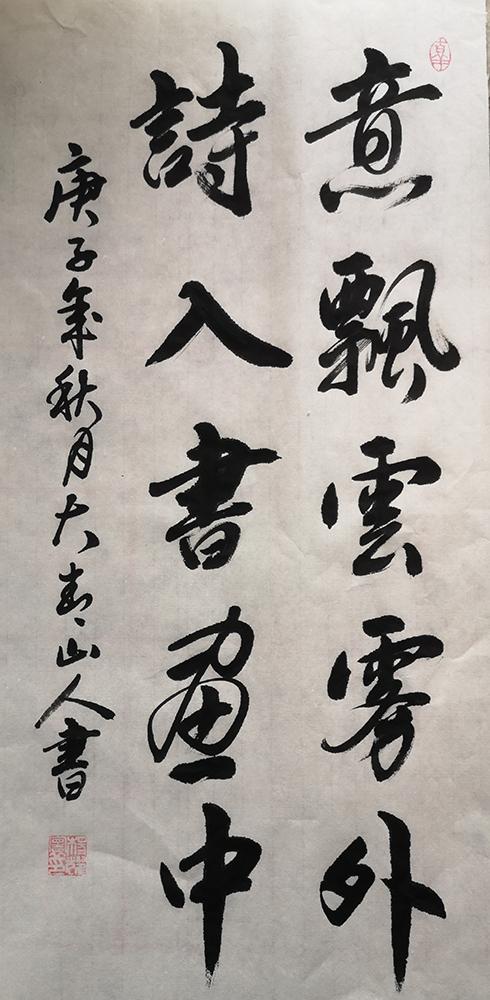 意飄雲雾外
詩入書畫中
庚子年秋月大青山人書